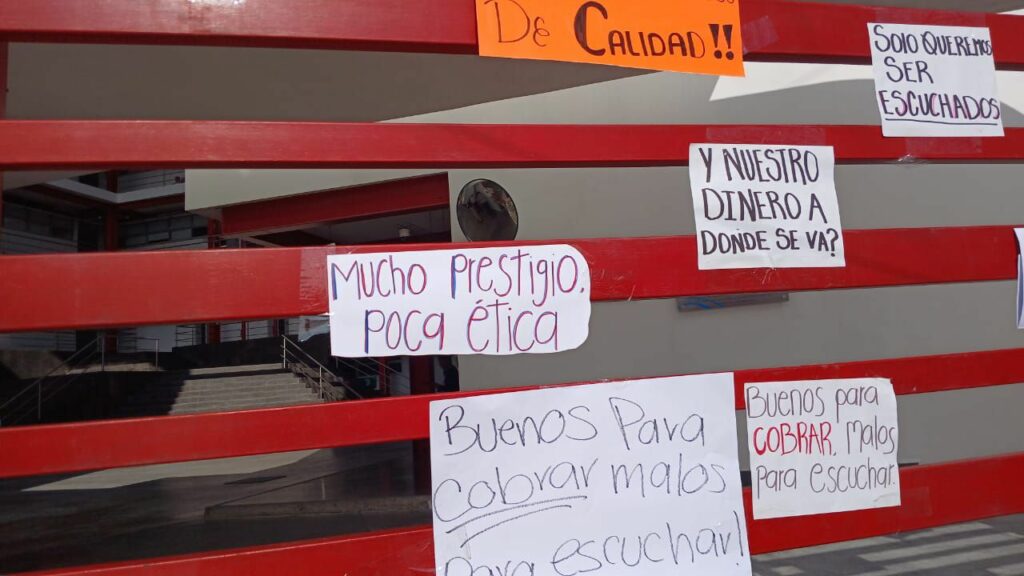 De Calidad!!
Solo queremos
ser
escuchados
Y nuestro
dinero a
donde se va?
Mucho prestigio,
poca ética
Buenos Para
cobrar malos
Para escuchar!
Buenos para
COBRAR, Malos
para escuchar.